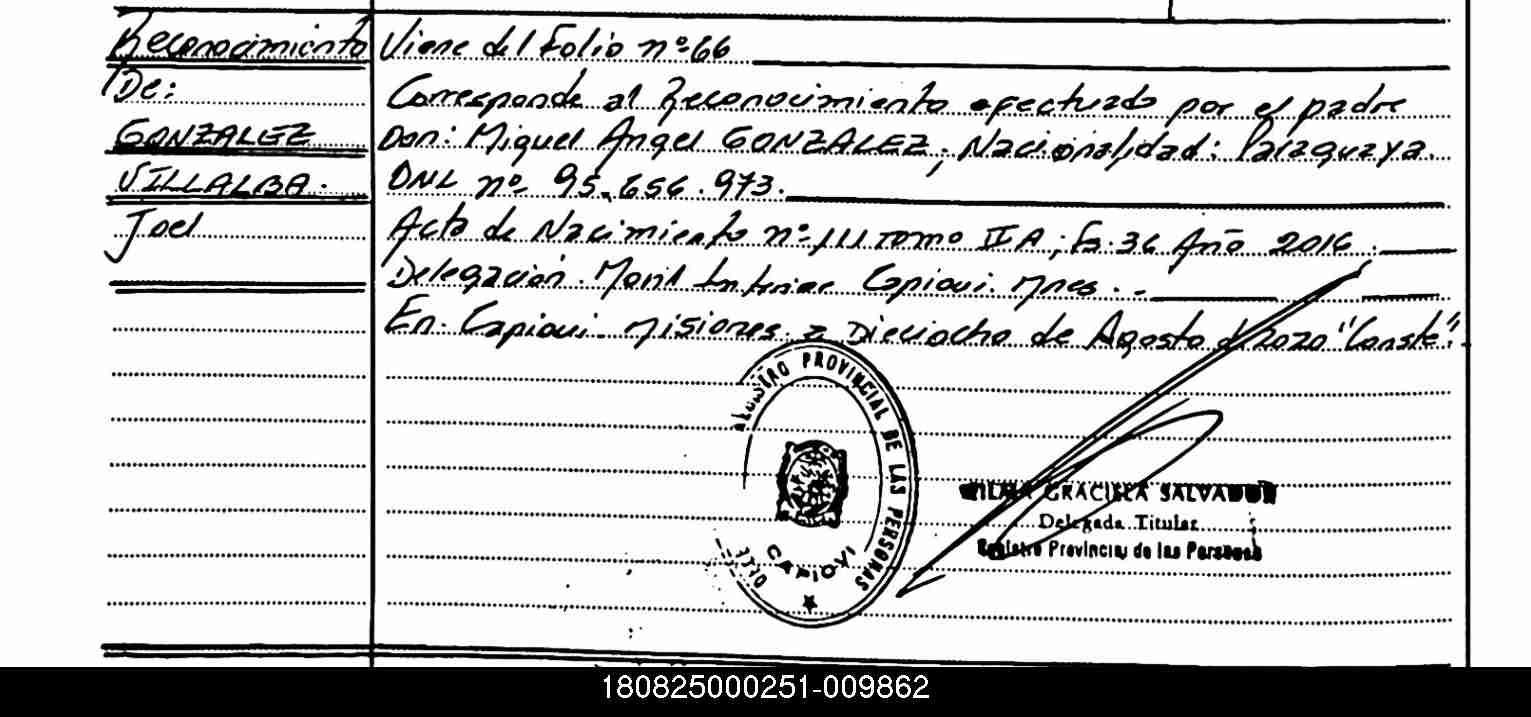 Reconocimiento
De:
GONZALEZ
VILLALBA.
Joel
Viene del Folio nº 66
Corresponde al Reconocimiento efectuado por el padre
Don: Miguel Angel GONZALEZ, Nacionalidad: Paraguaya.
DNI. nº 95.656.973.
Acta de Nacimiento nº 111 Tomo II A; Fs: 36 Año 2016.
Delegación Capiovi. Mnes.
En Capiovi. Misiones a Dieciocho de Agosto d 2020 "Conste".
REGISTRO PROVINCIAL DE LAS PERSONAS
CAPIOVI
GRACIELA SALVADOR
Delegada Titular
Registro Provincial de las Personas
180825000251-009862